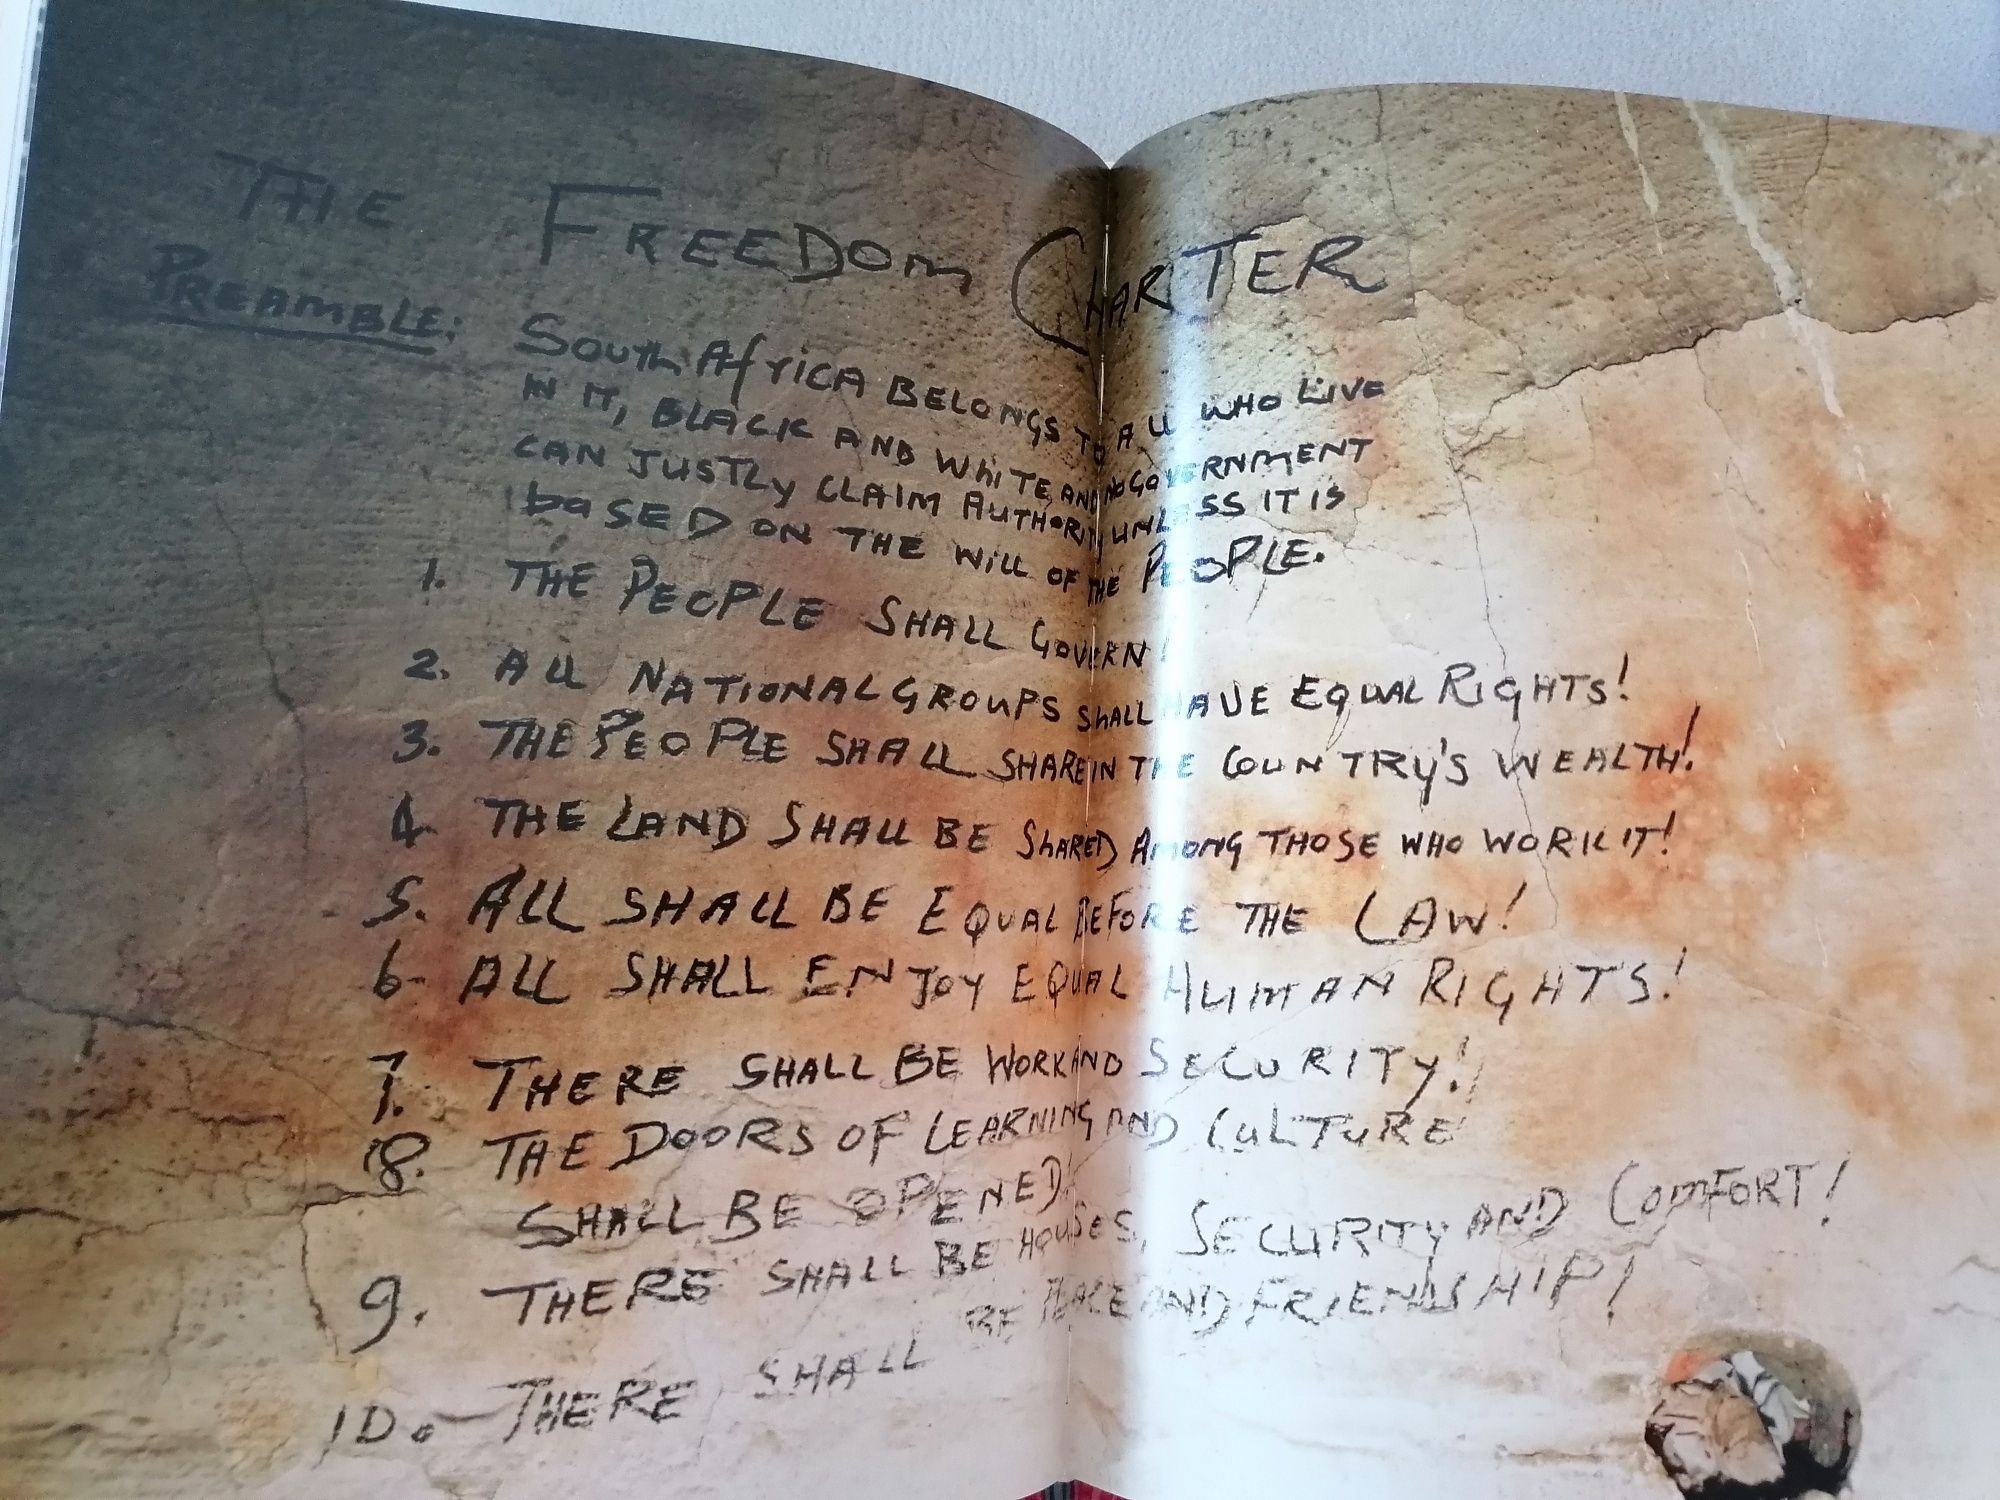 THE FREEDOM CHARTER
PREAMBLE: SOUTH AFRICA BELONGS TO ALL WHO LIVE
IN IT, BLACK AND WHITE, AND NO GOVERNMENT
CAN JUSTLY CLAIM AUTHORITY UNLESS IT IS
BASED ON THE WILL OF THE PEOPLE.
1. THE PEOPLE SHALL GOVERN!
2. ALL NATIONAL GROUPS SHALL HAVE EQUAL RIGHTS!
3. THE PEOPLE SHALL SHARE IN THE COUNTRY'S WEALTH!
4. THE LAND SHALL BE SHARED AMONG THOSE WHO WORK IT!
5. ALL SHALL BE EQUAL BEFORE THE LAW!
6. ALL SHALL ENJOY EQUAL HUMAN RIGHTS!
7. THERE SHALL BE WORK AND SECURITY!
8. THE DOORS OF LEARNING AND CULTURE
SHALL BE OPENED!
9. THERE SHALL BE HOUSES, SECURITY AND COMFORT!
10. THERE SHALL BE PEACE AND FRIENDSHIP!